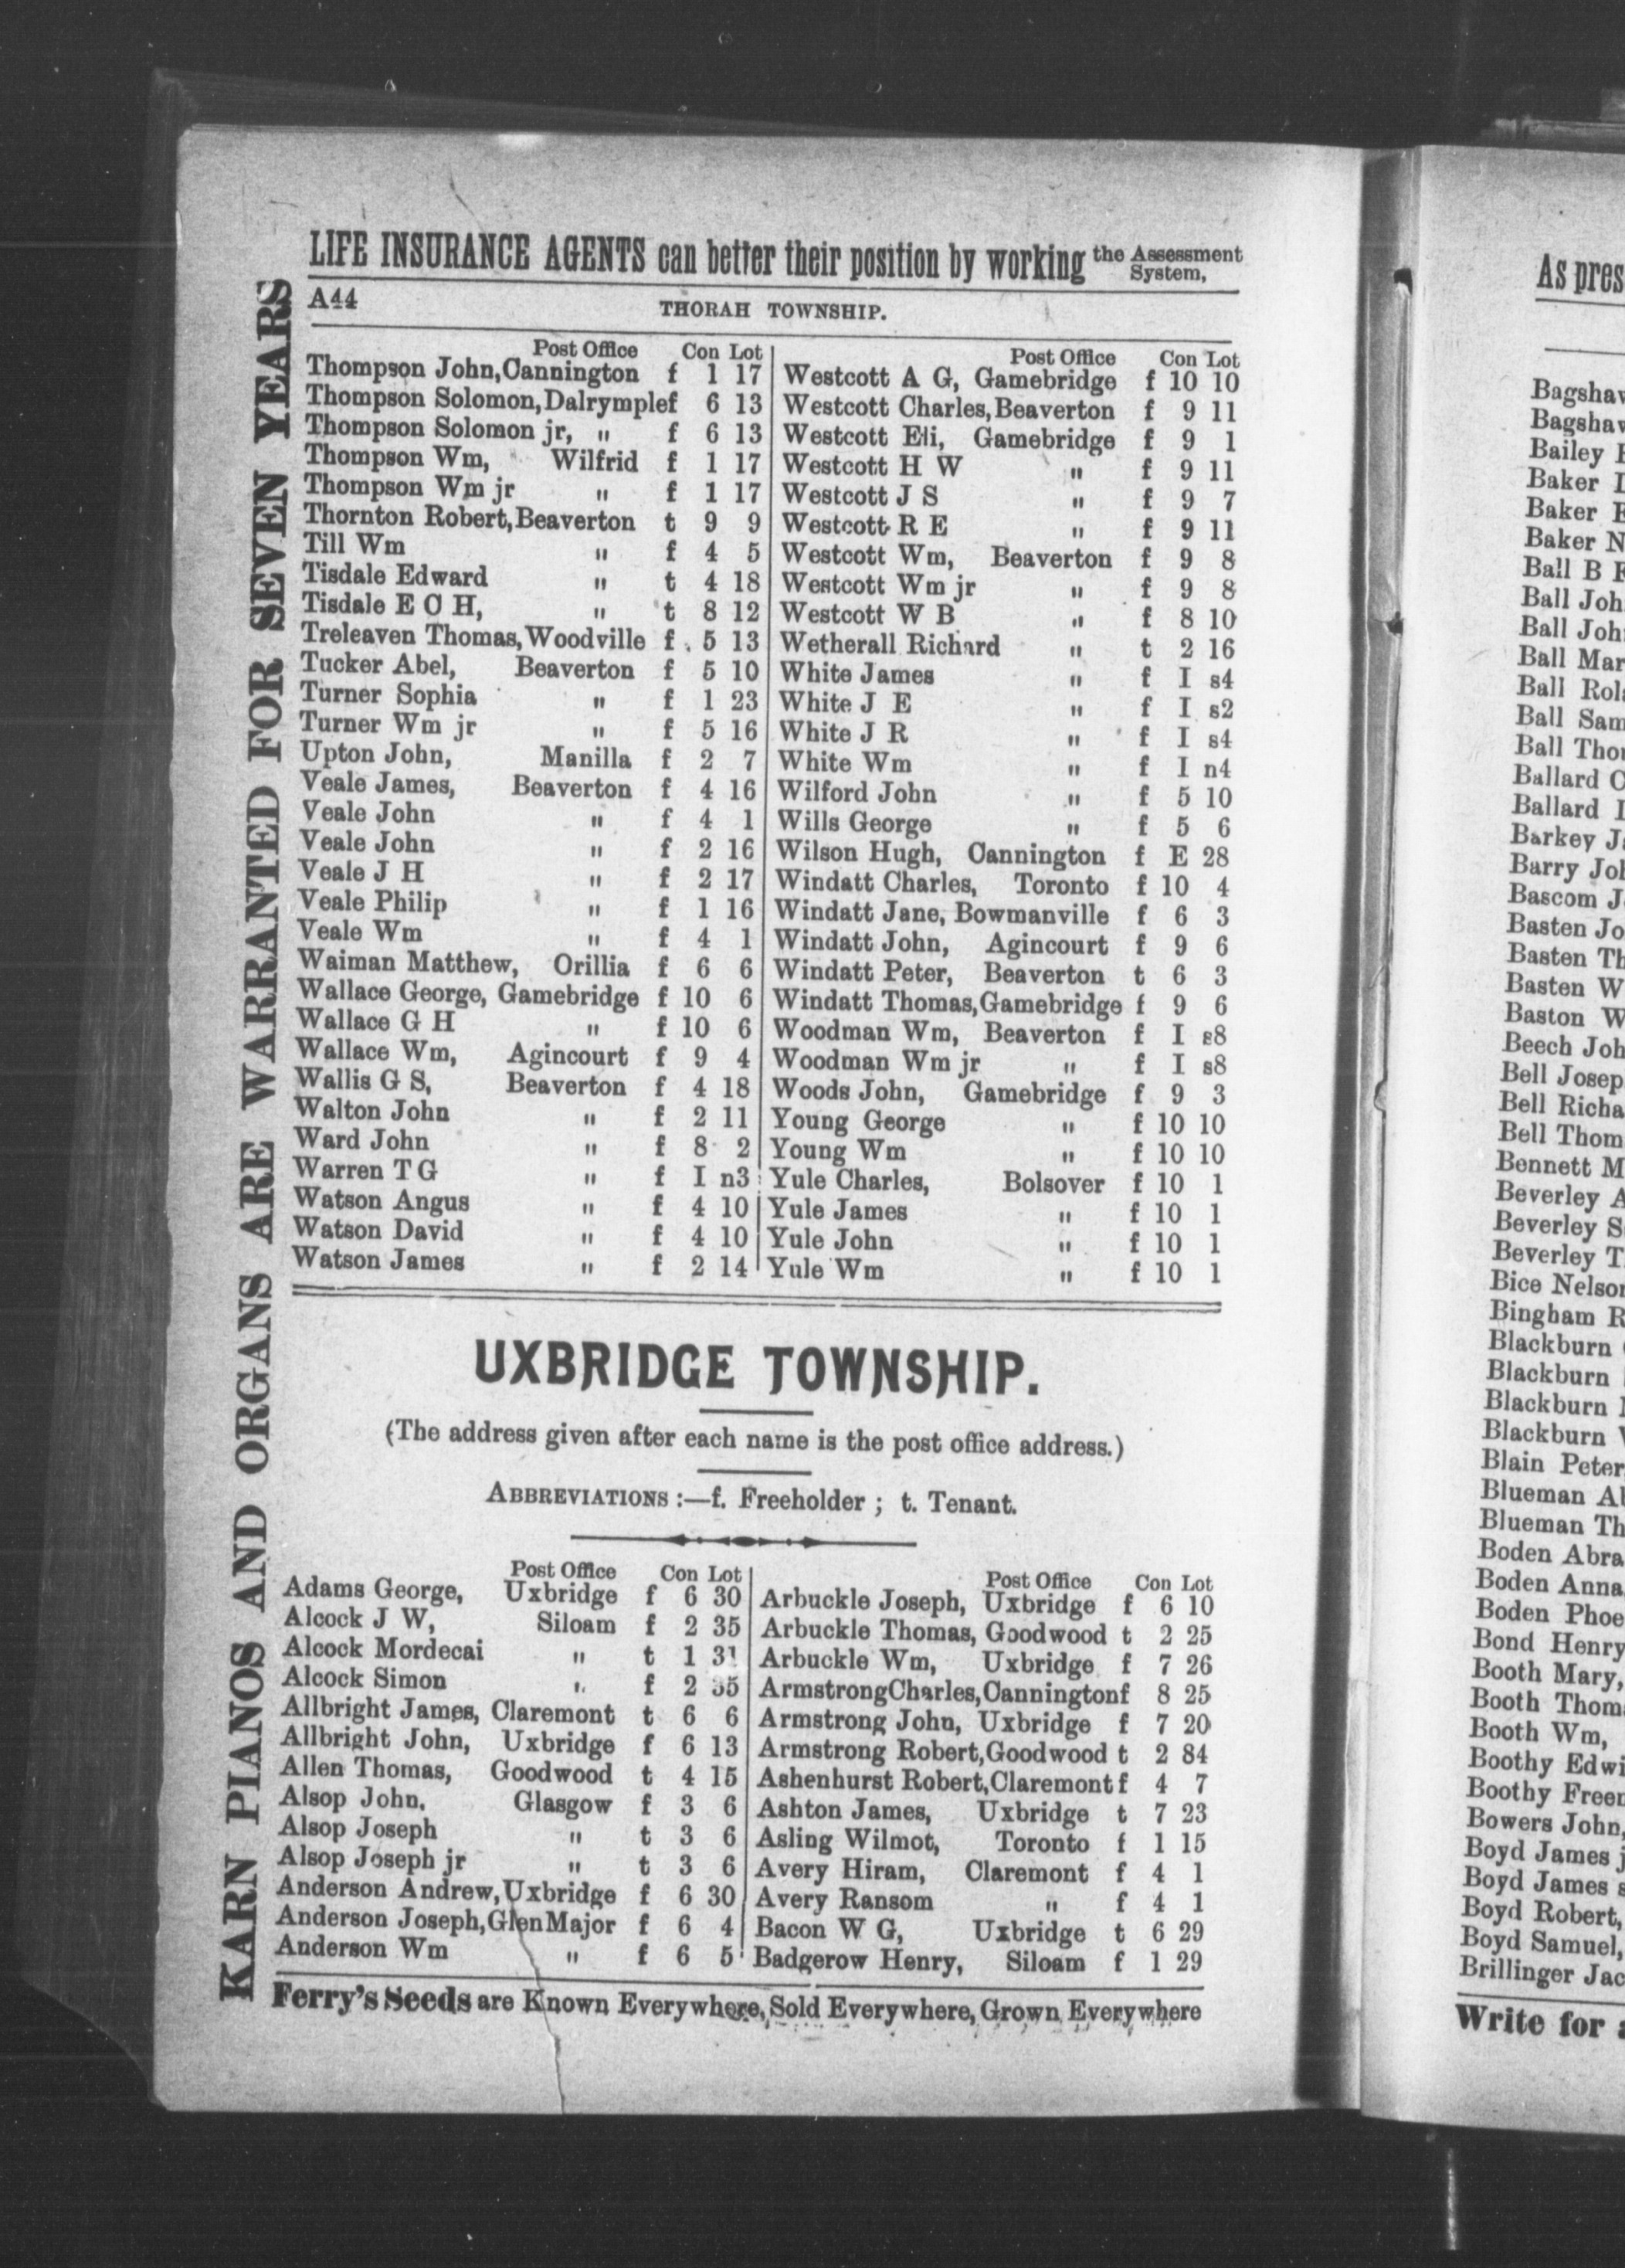 LIFE INSURANCE AGENTS can better their position by working the Assessment System,
A44 THORAH TOWNSHIP.
Post Office Con Lot
Thompson John, Cannington f 1 17
Thompson Solomon, Dalrymple f 6 13
Thompson Solomon jr, " f 6 13
Thompson Wm, Wilfrid f 1 17
Thompson Wm jr " f 1 17
Thornton Robert, Beaverton t 9 9
Till Wm " f 4 5
Tisdale Edward " t 4 18
Tisdale E C H, " t 8 12
Treleaven Thomas, Woodville f 5 13
Tucker Abel, Beaverton f 5 10
Turner Sophia " f 1 23
Turner Wm jr " f 5 16
Upton John, Manilla f 2 7
Veale James, Beaverton f 4 16
Veale John " f 4 1
Veale John " f 2 16
Veale J H " f 2 17
Veale Philip " f 1 16
Veale Wm " f 4 1
Waiman Matthew, Orillia f 6 6
Wallace George, Gamebridge f 10 6
Wallace G H " f 10 6
Wallace Wm, Agincourt f 9 4
Wallis G S, Beaverton f 4 18
Walton John " f 2 11
Ward John " f 8 2
Warren T G " f I n3
Watson Angus " f 4 10
Watson David " f 4 10
Watson James " f 2 14
Post Office Con Lot
Westcott A G, Gamebridge f 10 10
Westcott Charles, Beaverton f 9 11
Westcott Eli, Gamebridge f 9 1
Westcott H W " f 9 11
Westcott J S " f 9 7
Westcott R E " f 9 11
Westcott Wm, Beaverton f 9 8
Westcott Wm jr " f 9 8
Westcott W B " f 8 10
Wetherall Richard " t 2 16
White James " f I s4
White J E " f I s2
White J R " f I s4
White Wm " f I n4
Wilford John " f 5 10
Wills George " f 5 6
Wilson Hugh, Cannington f E 28
Windatt Charles, Toronto f 10 4
Windatt Jane, Bowmanville f 6 3
Windatt John, Agincourt f 9 6
Windatt Peter, Beaverton t 6 3
Windatt Thomas, Gamebridge f 9 6
Woodman Wm, Beaverton f I s8
Woodman Wm jr " f I s8
Woods John, Gamebridge f 9 3
Young George " f 10 10
Young Wm " f 10 10
Yule Charles, Bolsover f 10 1
Yule James " f 10 1
Yule John " f 10 1
Yule Wm " f 10 1
UXBRIDGE TOWNSHIP.
(The address given after each name is the post office address.)
ABBREVIATIONS :—f. Freeholder ; t. Tenant.
Post Office Con Lot
Adams George, Uxbridge f 6 30
Alcock J W, Siloam f 2 35
Alcock Mordecai " t 1 31
Alcock Simon " f 2 35
Allbright James, Claremont t 6 6
Allbright John, Uxbridge f 6 13
Allen Thomas, Goodwood t 4 15
Alsop John, Glasgow f 3 6
Alsop Joseph " t 3 6
Alsop Joseph jr " t 3 6
Anderson Andrew, Uxbridge f 6 30
Anderson Joseph, Glen Major f 6 4
Anderson Wm " f 6 5
Post Office Con Lot
Arbuckle Joseph, Uxbridge f 6 10
Arbuckle Thomas, Goodwood t 2 25
Arbuckle Wm, Uxbridge f 7 26
Armstrong Charles, Cannington f 8 25
Armstrong John, Uxbridge f 7 20
Armstrong Robert, Goodwood t 2 84
Ashenhurst Robert, Claremont f 4 7
Ashton James, Uxbridge t 7 23
Asling Wilmot, Toronto f 1 15
Avery Hiram, Claremont f 4 1
Avery Ransom " f 4 1
Bacon W G, Uxbridge t 6 29
Badgerow Henry, Siloam f 1 29
Ferry's Seeds are Known Everywhere, Sold Everywhere, Grown Everywhere
KARN PIANOS AND ORGANS ARE WARRANTED FOR SEVEN YEARS
As
Bailey
Baker
Baker
Baker
Ball B
Ball
Ball
Ball
Ball
Ball
Ball
Ballard
Ballard
Barkey
Barry
Bascom
Basten
Basten
Basten
Baston
Beech
Bell
Bell
Bell
Bennett
Beverley
Beverley
Beverley
Bice
Bingham
Blackburn
Blackburn
Blackburn
Blackburn
Blain Peter
Blueman
Blueman
Boden
Boden Anna
Boden
Bond Henry
Booth Mary,
Booth
Booth Wm,
Boothy
Boothy
Bowers John,
Boyd James
Boyd James
Boyd Robert,
Boyd Samuel,
Brillinger
Write for